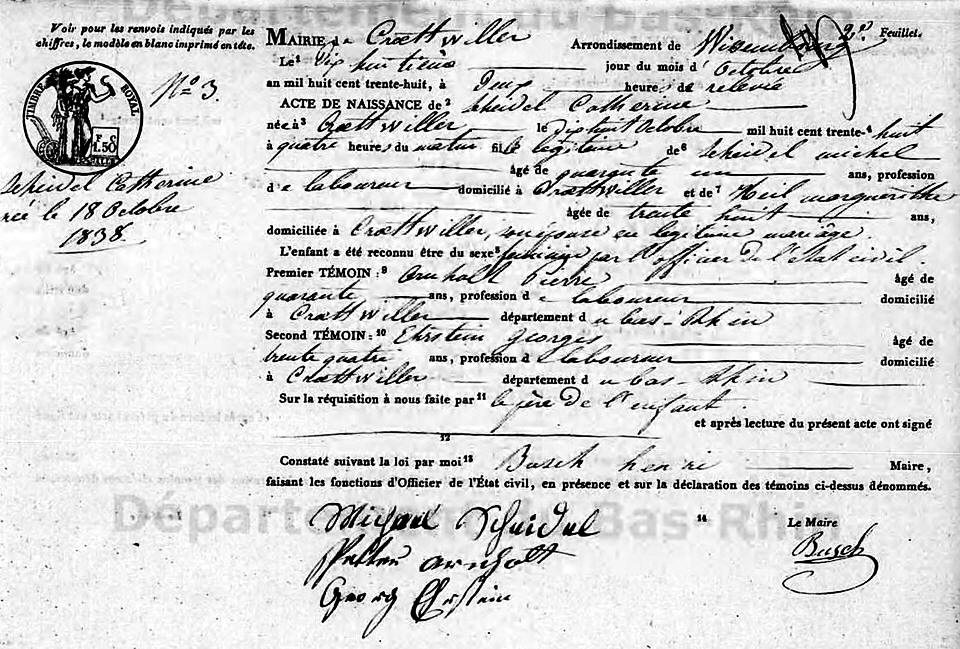 Département du Bas-Rhin
Voir pour les renvois indiqués par les
chiffres, le modèle en blanc imprimé en tête.
TIMBRE ROYAL
F. C
1.50
N° 3.
Scheidel Catherine
née le 18 Octobre
1838.
MAIRIE de Crœttwiller Arrondissement de Wissembourg 2e Feuillet.
Le¹ Dix huitième jour du mois d'Octobre
an mil huit cent trente-huit, à Deux heures de relevée
ACTE DE NAISSANCE de² Scheidel Catherine
née à³ Crœttwiller le dixhuit Octobre mil huit cent trente-⁴ huit
à quatre heures du matin fille⁵ légitime de⁶ Scheidel michel
âgé de quarante un ans, profession
de laboureur domicilié à Crœttwiller et de⁷ Heil marguerithe
âgée de trente huit ans,
domiciliée à Crœttwiller, conjoins en légitime mariâge
L'enfant a été reconnu être du sexe⁸ féminin par l'officier de l'état civil.
Premier TÉMOIN :⁹ Arnholt Pierre âgé de
quarante ans, profession de laboureur domicilié
à Crœttwiller département du bas-Rhin
Second TÉMOIN :¹⁰ Ehrstein Georges âgé de
trente quatre ans, profession de laboureur domicilié
à Crœttwiller département du bas-Rhin
Sur la réquisition à nous faite par¹¹ le père de l'enfant
et après lecture du présent acte ont signé
12
Constaté suivant la loi par moi¹³ Busch henri Maire,
faisant les fonctions d'Officier de l'État civil, en présence et sur la déclaration des témoins ci-dessus dénommés.
Département du Bas-Rhin
Michael Scheidel 14 Le Maire
Petter arnholt Busch
Georg Ehrstein